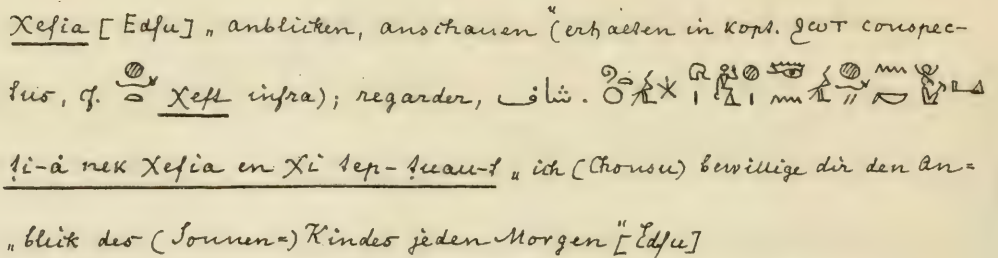 Xefia [Edfu] „anblicken, anschauen" (erhalten in kopt. ϩωτ conspec-
tus, cf. Xeft infra); regarder, شاف.
ṭi-à nek Xefia en Xi tep-ṭuau-t „ich (Chonsu) bewillige dir den An=
„blick des (Sonnen=) Kindes jeden Morgen" [Edfu]